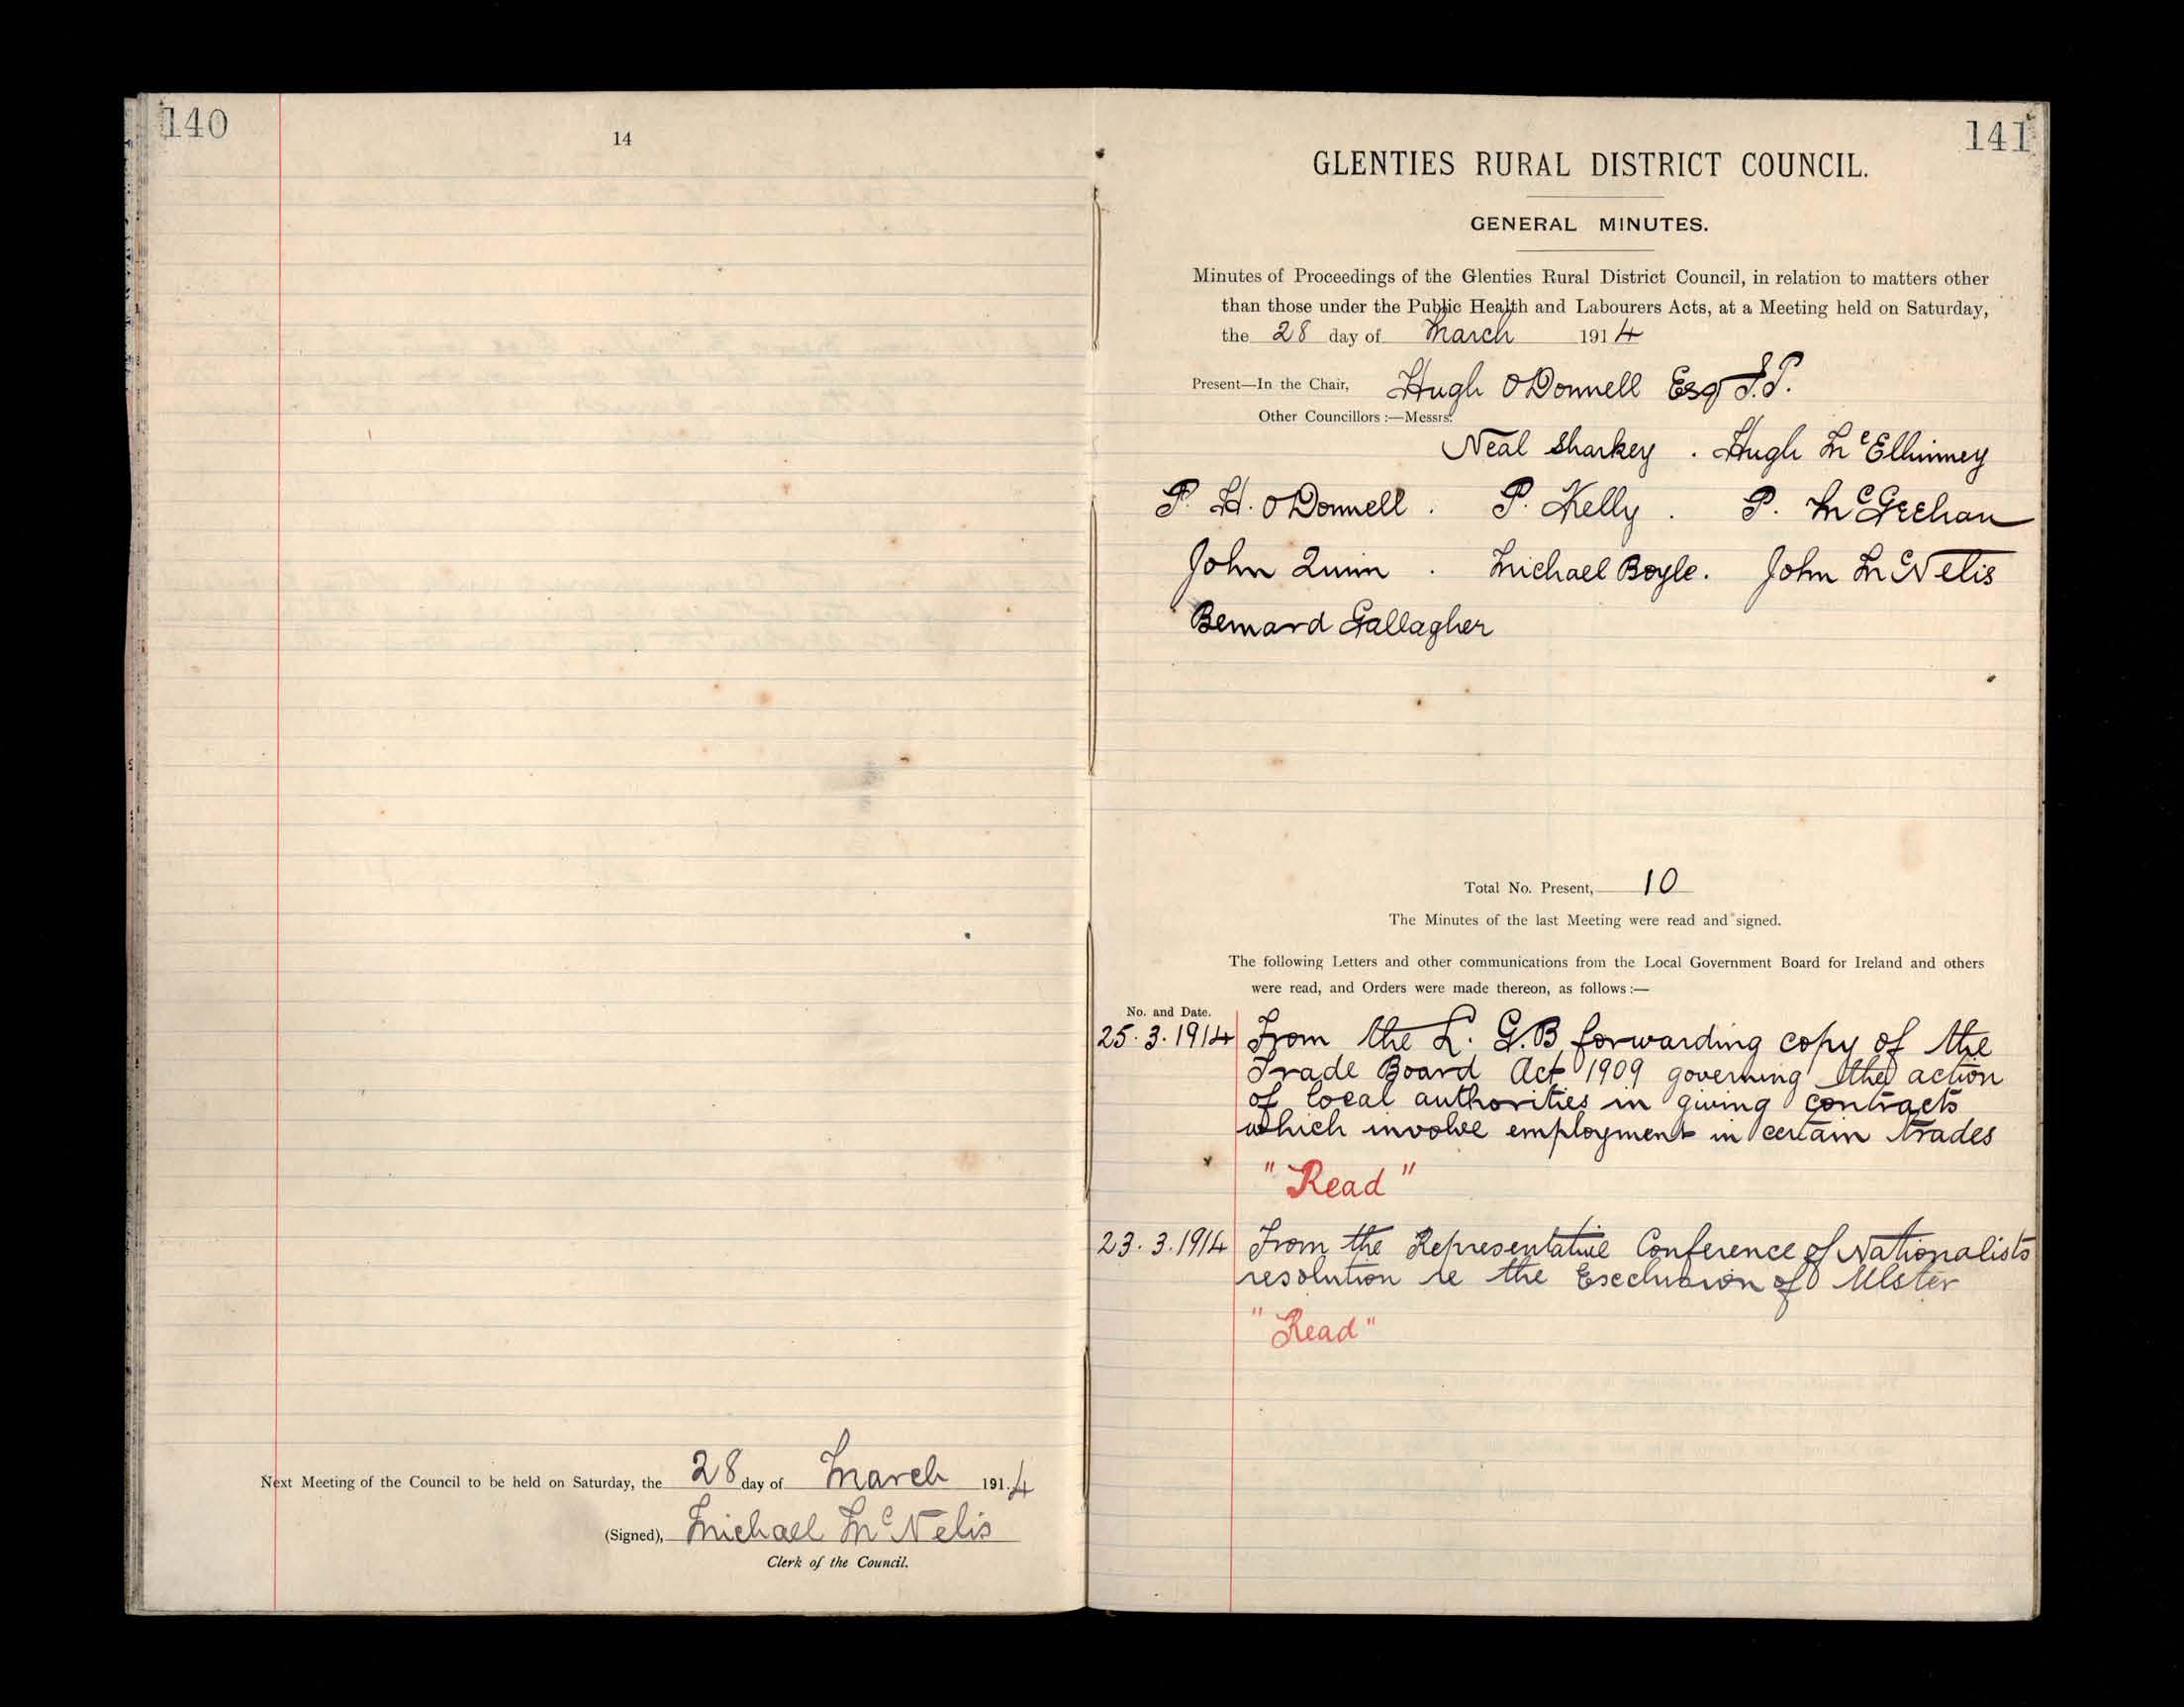 140
14
Next Meeting of the Council to be held on Saturday, the 28 day of March 1914
(Signed), Michael McNelis
Clerk of the Council.
141
GLENTIES RURAL DISTRICT COUNCIL.
GENERAL MINUTES.
Minutes of Proceedings of the Glenties Rural District Council, in relation to matters other
than those under the Public Health and Labourers Acts, at a Meeting held on Saturday,
the 28 day of March 1914
Present—In the Chair, Hugh O'Donnell Esq J.P.
Other Councillors :—Messrs.
Neal Sharkey . Hugh McElhinney
P. H. O'Donnell . P. Kelly . P. McGeehan
John Quinn . Michael Boyle. John McNelis
Bernard Gallagher
Total No. Present, 10
The Minutes of the last Meeting were read and signed.
The following Letters and other communications from the Local Government Board for Ireland and others
were read, and Orders were made thereon, as follows :—
No. and Date.
25.3.1914 From the L. G.B forwarding copy of the
Trade Board Act 1909 governing the action
of local authorities in giving contracts
which involve employment in certain trades
"Read"
23.3.1914 From the Representative Conference of Nationalists
resolution re the Exclusion of Ulster
"Read"